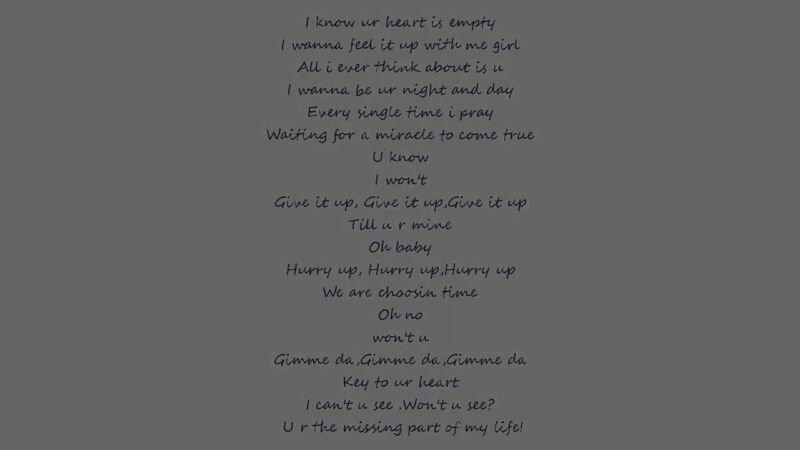 I know ur heart is empty
I wanna feel it up with me girl
All i ever think about is u
I wanna be ur night and day
Every single time i pray
Waiting for a miracle to come true
U know
I won't
Give it up, Give it up,Give it up
Till u r mine
Oh baby
Hurry up, Hurry up,Hurry up
We are choosin time
Oh no
won't u
Gimme da,Gimme da,Gimme da
Key to ur heart
I can't u see .Won't u see?
U r the missing part of my life!